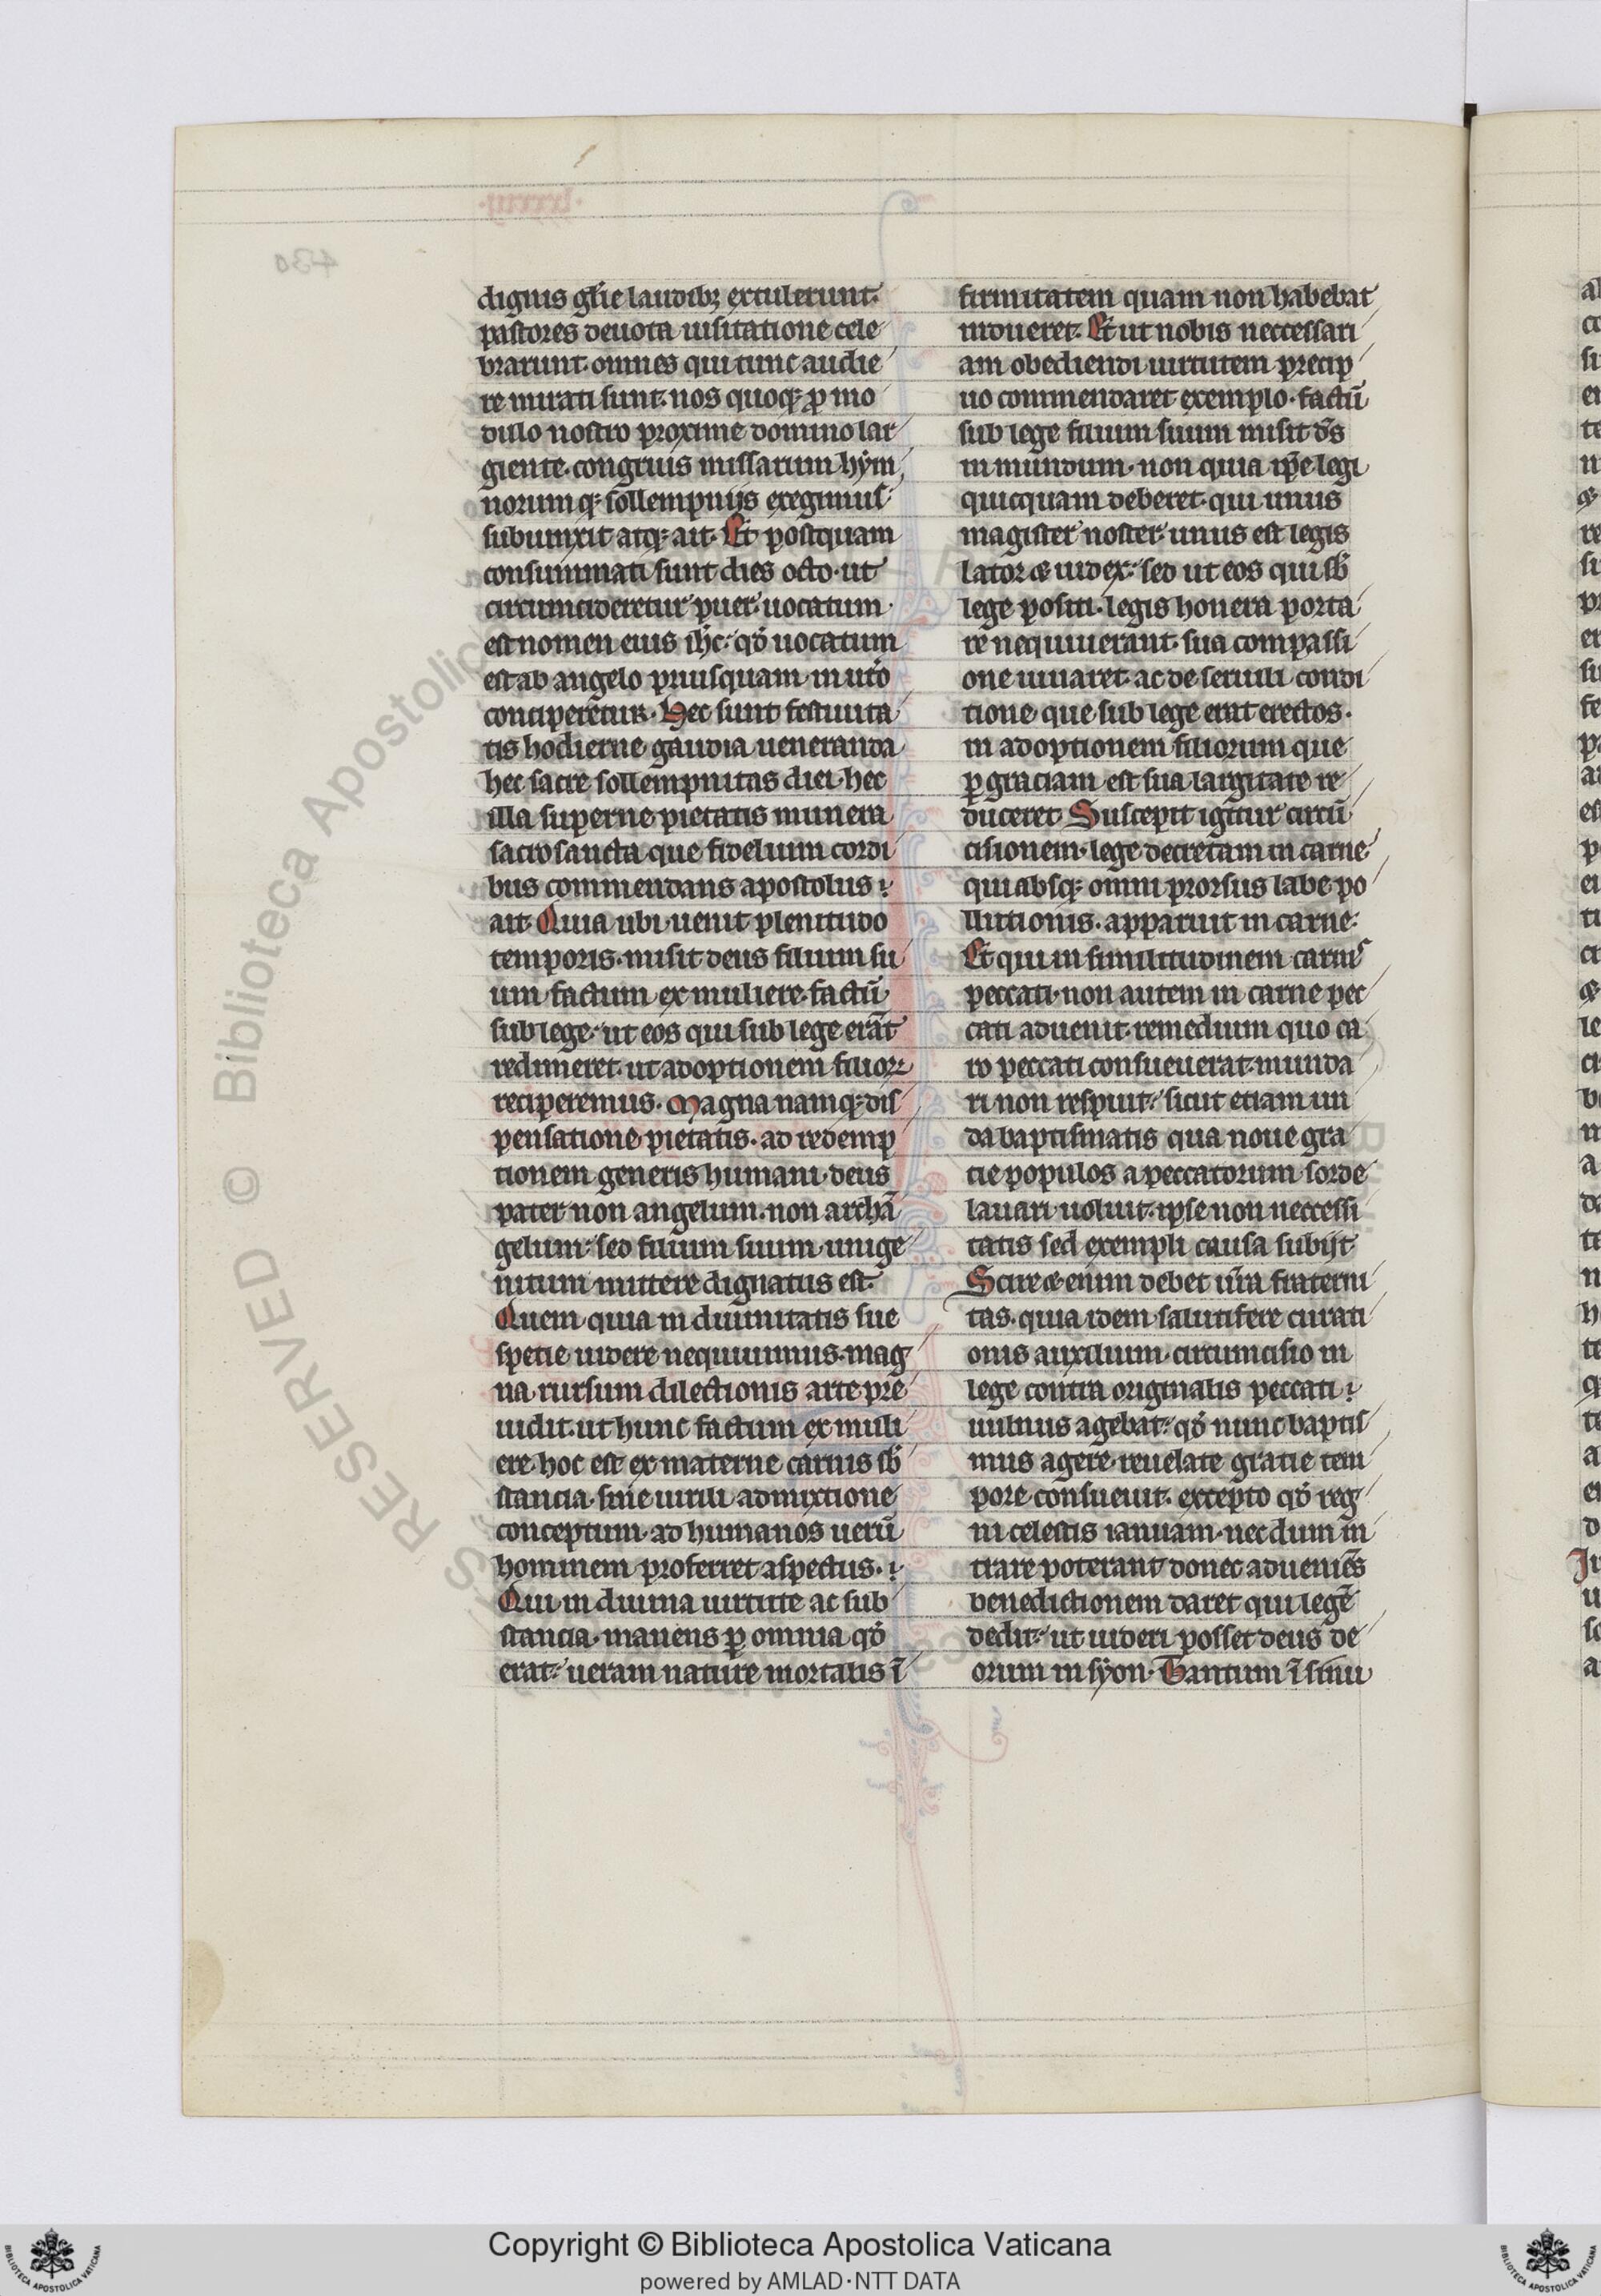 dignis gl̄ie laudib; extulerunt.
pastores deuota uisitatione cele
brarunt. omnes qui tunc audie
re mirati sunt. nos quoq; ꝓ mo
dulo nostro proxime domino lar
giente. congruis missarum hym
norumq; sollempnijs exegimus.
subiunxit atq; ait. Et postquam
consummati sunt dies octo. ut
circumcideretur puer. uocatum
est nomen eius ih̄c. qđ uocatum
est ab angelo priusquam in ut̄o
conciperetur. Hec sunt festiuita
tis hodierne gaudia ueneranda
hec sacre sollempnitas diei. hec
illa superne pietatis munera
sacrosancta. que fidelium cordi
bus commendans apostolus.
ait. Quia ubi uenit plenitudo
temporis. misit deus filium su
um factum ex muliere. factū
sub lege. ut eos qui sub lege erāt
redimeret. ut adoptionem filioꝝ
reciperemus. Magna namq; dis
pensatione pietatis. ad redemp
tionem generis humani. deus
pater non angelum. non archā
gelum. sed filium suum unige
nitum mittere dignatus est.
Quem quia in diuinitatis sue
specie uidere nequiuimus. mag
na rursum dilectionis arte pre
uidit. ut hunc factum ex muli
ere. hoc est ex materne carnis sb̄
stancia. sine uirili admixtione
conceptum. ad humanos uerū
hominem proferret aspectus.
Qui in diuina uirtute ac sub
stancia. manens ꝑ omnia qđ
erat. ueram nature mortalis ī
firmitatem quam non habebat
indueret. Et ut nobis neccessari
am obediendi uirtutem precip
uo commendaret exemplo. factū
sub lege filium suum misit ds̄
in mundum. non quia ip̄e legi
quicquam deberet. qui unus
magister noster. unus est legis
lator ⁊ iudex. sed ut eos qui sb̄
lege positi. legis honera porta
re nequiuerant. sua compassi
one iuuaret. ac de seruili condi
tione que sub lege erat erectos.
in adoptionem filiorum que
ꝑ graciam est sua largitate re
duceret. Suscepit igitur circū
cisionem. lege decretam in carne
qui absq; omni prorsus labe po
llutionis. apparuit in carne.
Et qui in similitudinem carnis
peccati. non autem in carne pec
cati aduenit. remedium quo ca
ro peccati consueuerat. munda
ri non respuit. sicut etiam un
da baptismatis qua noue gra
tie populos a peccatorum sorde
lauari uoluit. ipse non neccessi
tatis sed exempli causa subijt.
Scire ⁊enim debet ur̄a fraterni
tas. quia idem salutifere curati
onis auxilium. circumcisio in
lege contra originalis peccati.
uulnus agebat. qđ nunc baptis
mus agere. reuelate gratie tem
pore consueuit. excepto qđ reg
ni celestis ianuam. necdum in
trare poterant donec adueniēs
benedictionem daret qui legē
dedit. ut uideri posset deus de
orum in syon. Tantum ī sinu
Copyright © Biblioteca Apostolica Vaticana
powered by AMLAD·NTT DATA